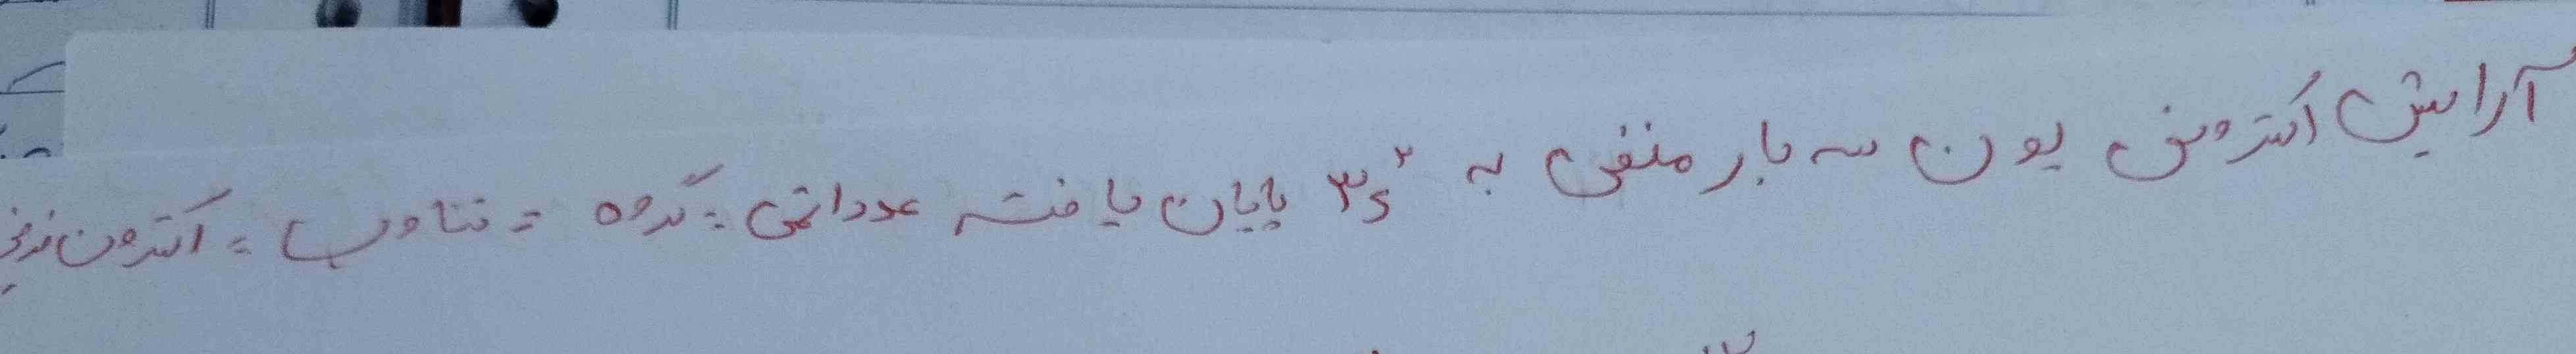 آرایش الکترونی یون سه بار منفی به ۳s² پایان یافته عدد اتمی - گروه - تناوب - الکترون